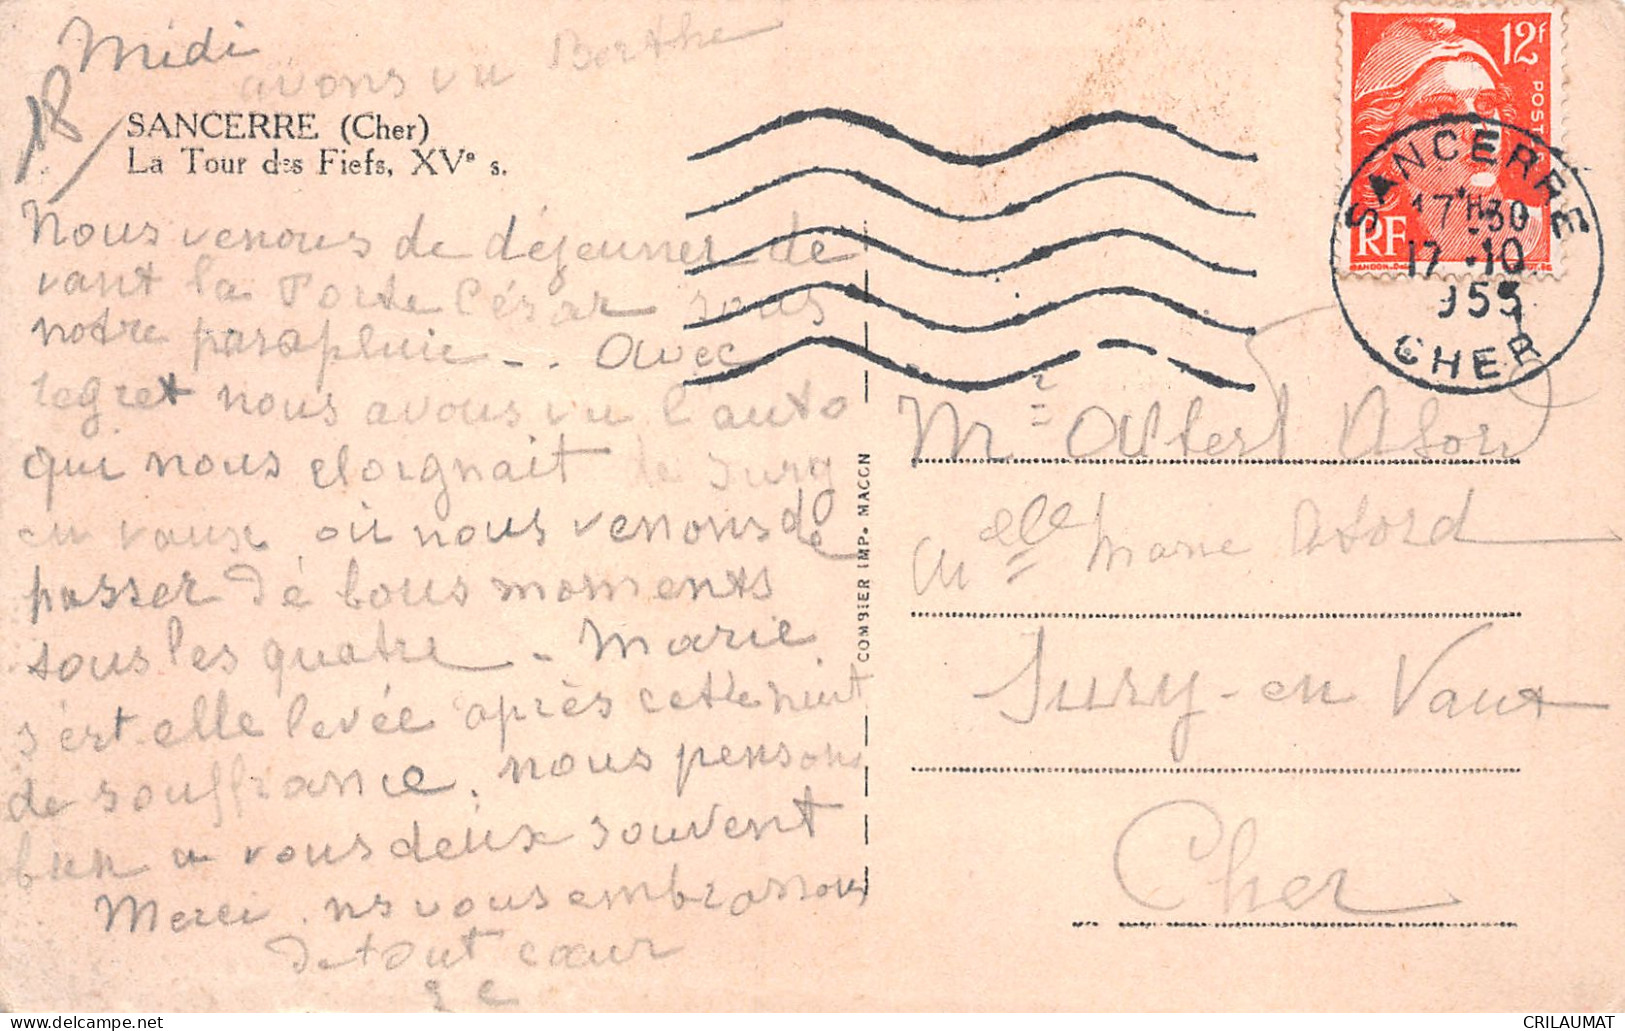 Midi
avons vu Berthe
18
SANCERRE (Cher)
La Tour des Fiefs, XVe s.
Nous venons de déjeuner de
vant la Porte César sous
notre parapluie - . . Avec
regret nous avons vu l'auto
qui nous eloignait de Sury
en vaux où nous venons de
passer dé bons moments
tous les quatre - Marie
s'est-elle levée après cette nuit
de souffrance, nous pensons
bien a vous deux souvent
Merci . ns vous embrassons
de tout cœur
COMBIER IMP. MACON
12f
POSTES
RF
SANCERRE
17H30
17-10
1953
CHER
Mr Albert
Melle Marie
Sury-en Vaux
Cher
CRILAUMAT